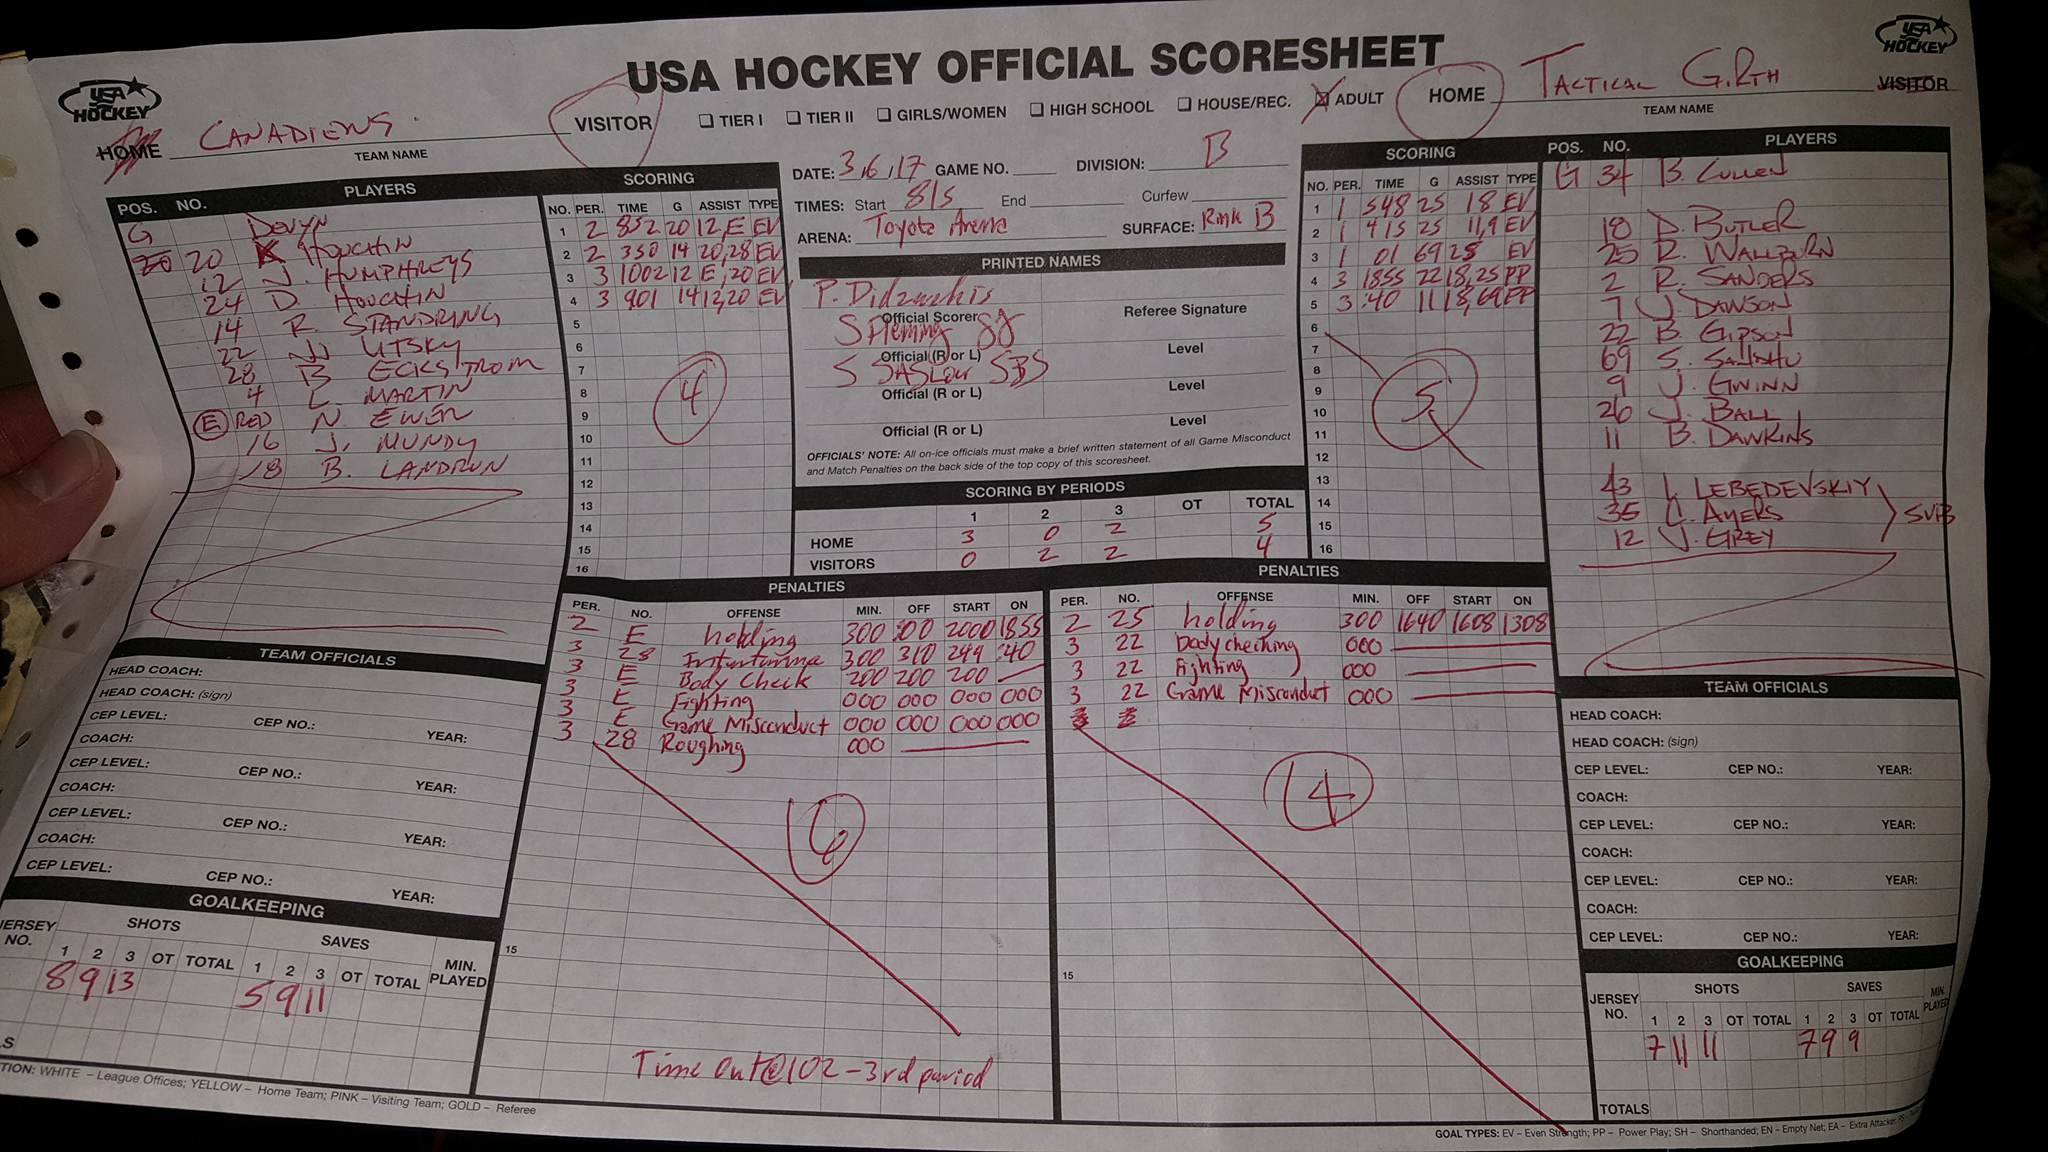 USA HOCKEY OFFICIAL SCORESHEET
USA HOCKEY
USA HOCKEY
HOME CANADIENS VISITOR
TEAM NAME
☐ TIER I ☐ TIER II ☐ GIRLS/WOMEN ☐ HIGH SCHOOL ☐ HOUSE/REC. ☒ ADULT
HOME TACTICAL GIRTH VISITOR
TEAM NAME
POS. NO. PLAYERS
G DEVYN
20 20 K HOUCHIN
12 J. HUMPHREYS
24 D. HOUCHIN
14 R. STANDRING
22 N. UTSKY
28 B ECKSTROM
4 L. MARTIN
E RED N. EWEN
16 J. MUNDY
18 B. LANDRUN
SCORING
NO. PER. TIME G ASSIST TYPE
1 2 852 20 12, E EV
2 2 350 14 20,28 EV
3 3 1002 12 E, 20 EV
4 3 901 14 12,20 EV
5
6
7
8
9
10
11
12
13
14
15
16
4
DATE: 3,6,17 GAME NO. DIVISION: B
TIMES: Start 815 End Curfew
ARENA: Toyota Arena SURFACE: Rink B
PRINTED NAMES
P. Didzunkis
Official Scorer Referee Signature
S Fleming SJ
Official (R or L) Level
S SASLOW SBS
Official (R or L) Level
Official (R or L) Level
OFFICIALS' NOTE: All on-ice officials must make a brief written statement of all Game Misconduct
and Match Penalties on the back side of the top copy of this scoresheet.
SCORING BY PERIODS
1 2 3 OT TOTAL
HOME 3 0 2 5
VISITORS 0 2 2 4
SCORING
NO. PER. TIME G ASSIST TYPE
1 1 548 25 18 EV
2 1 415 25 11,9 EV
3 1 01 69 25 EV
4 3 1855 22 18,25 PP
5 3 :40 11 18,69 PP
6
7
8
9
10
11
12
13
14
15
16
5
POS. NO. PLAYERS
G 34 B. CULLEN
18 D. BUTLER
25 R. WALLBURN
2 R. SANDERS
7 J. DAWSON
22 B. GIPSON
69 S. SANDHU
9 J. GWINN
26 J. BALL
11 B. DAWKINS
43 I. LEBEDEVSKIY
35 C. AYERS
12 J. GREY
SUB
PENALTIES
PER. NO. OFFENSE MIN. OFF START ON
2 E holding 300 :00 2000 1855
3 28 300 310 249 :40
3 E Body Check 200 200 200
3 E Fighting 000 000 000 000
3 E Game Misconduct 000 000 000 000
3 28 Roughing 000
6
15
Time Out@102 - 3rd period
PENALTIES
PER. NO. OFFENSE MIN. OFF START ON
2 25 holding 300 1640 1608 1308
3 22 Body checking 000
3 22 Fighting 000
3 22 Game Misconduct 000
4
15
TEAM OFFICIALS
HEAD COACH:
HEAD COACH: (sign)
CEP LEVEL: CEP NO.: YEAR:
COACH:
CEP LEVEL: CEP NO.: YEAR:
COACH:
CEP LEVEL: CEP NO.: YEAR:
COACH:
CEP LEVEL: CEP NO.: YEAR:
GOALKEEPING
JERSEY NO. SHOTS SAVES MIN. PLAYED
1 2 3 OT TOTAL 1 2 3 OT TOTAL
8 9 13 5 9 11
TEAM OFFICIALS
HEAD COACH:
HEAD COACH: (sign)
CEP LEVEL: CEP NO.: YEAR:
COACH:
CEP LEVEL: CEP NO.: YEAR:
COACH:
CEP LEVEL: CEP NO.: YEAR:
COACH:
CEP LEVEL: CEP NO.: YEAR:
GOALKEEPING
JERSEY NO. SHOTS SAVES MIN. PLAYED
1 2 3 OT TOTAL 1 2 3 OT TOTAL
7 11 11 7 9 9
TOTALS
TION: WHITE – League Offices; YELLOW – Home Team; PINK – Visiting Team; GOLD – Referee
GOAL TYPES: EV – Even Strength; PP – Power Play; SH – Shorthanded; EN – Empty Net; EA – Extra Attacker